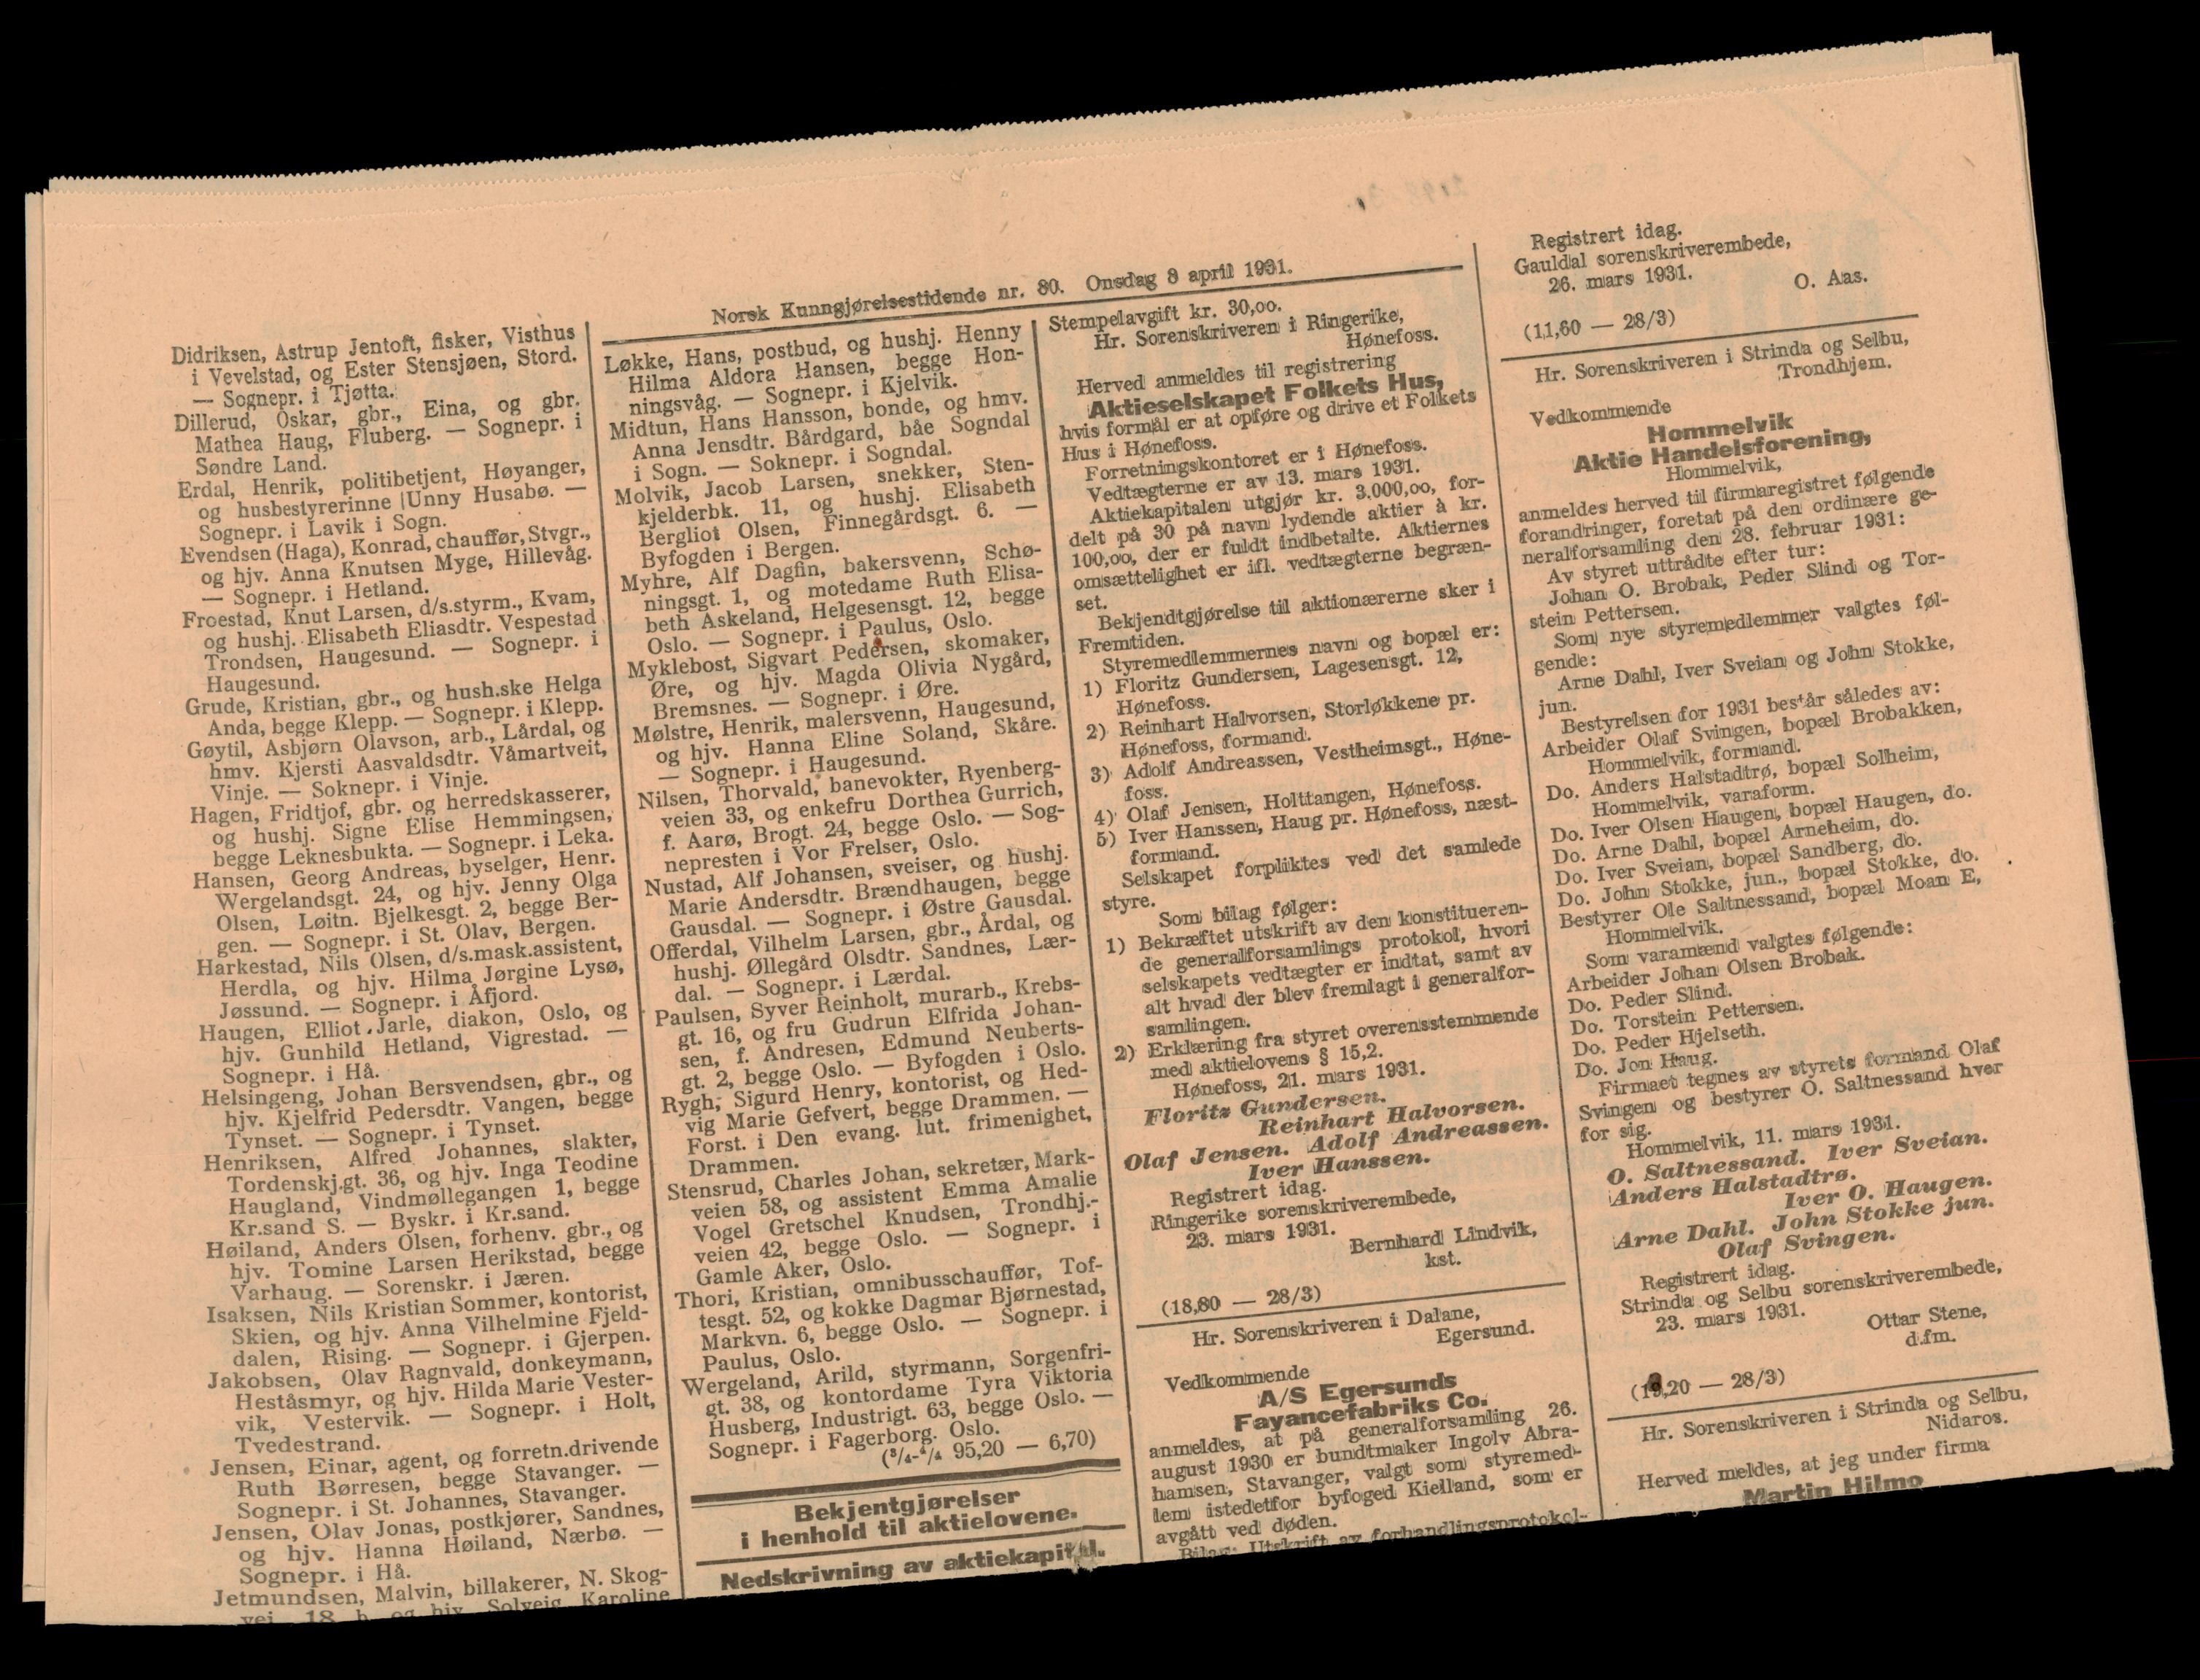 Norsk Kunngjørelsestidende nr. 80. Onsdag 8 april 1931.
Didriksen, Astrup Jentoft, fisker, Visthus
i Vevelstad, og Ester Stensjøen, Stord.
— Sognepr. i Tjøtta.
Dillerud, Oskar, gbr., Eina, og gbr.
Mathea Haug, Fluberg. — Sognepr. i
Søndre Land.
Erdal, Henrik, politibetjent, Høyanger,
og husbestyrerinne Unny Husabø. —
Sognepr. i Lavik i Sogn.
Evendsen (Haga), Konrad, chauffør, Stvgr.,
og hjv. Anna Knutsen Myge, Hillevåg.
— Sognepr. i Hetland.
Froestad, Knut Larsen, d/s.styrm., Kvam,
og hushj. Elisabeth Eliasdtr. Vespestad
Trondsen, Haugesund. — Sognepr. i
Haugesund.
Grude, Kristian, gbr., og hush.ske Helga
Anda, begge Klepp. — Sognepr. i Klepp.
Gøytil, Asbjørn Olavson, arb., Lårdal, og
hmv. Kjersti Aasvaldsdtr. Våmartveit,
Vinje. — Soknepr. i Vinje.
Hagen, Fridtjof, gbr. og herredskasserer,
og hushj. Signe Elise Hemmingsen,
begge Leknesbukta. — Sognepr. i Leka.
Hansen, Georg Andreas, byselger, Henr.
Wergelandsgt. 24, og hjv. Jenny Olga
Olsen, Løitn. Bjelkesgt. 2, begge Ber-
gen. — Sognepr. i St. Olav, Bergen.
Harkestad, Nils Olsen, d/s.mask.assistent,
Herdla, og hjv. Hilma Jørgine Lysø,
Jøssund. — Sognepr. i Åfjord.
Haugen, Elliot Jarle, diakon, Oslo, og
hjv. Gunhild Hetland, Vigrestad. —
Sognepr. i Hå.
Helsingeng, Johan Bersvendsen, gbr., og
hjv. Kjelfrid Pedersdtr. Vangen, begge
Tynset. — Sognepr. i Tynset.
Henriksen, Alfred Johannes, slakter,
Tordenskj.gt. 36, og hjv. Inga Teodine
Haugland, Vindmøllegangen 1, begge
Kr.sand S. — Byskr. i Kr.sand.
Høiland, Anders Olsen, forhenv. gbr., og
hjv. Tomine Larsen Herikstad, begge
Varhaug. — Sorenskr. i Jæren.
Isaksen, Nils Kristian Sommer, kontorist,
Skien, og hjv. Anna Vilhelmine Fjeld-
dalen, Rising. — Sognepr. i Gjerpen.
Jakobsen, Olav Ragnvald, donkeymann,
Heståsmyr, og hjv. Hilda Marie Vester-
vik, Vestervik. — Sognepr. i Holt,
Tvedestrand.
Jensen, Einar, agent, og forretn.drivende
Ruth Børresen, begge Stavanger. —
Sognepr. i St. Johannes, Stavanger.
Jensen, Olav Jonas, postkjører, Sandnes,
og hjv. Hanna Høiland, Nærbø. —
Sognepr. i Hå.
Jetmundsen, Malvin, billakerer, N. Skog-
vei 18 b, og hjv. Solveig Karoline
Løkke, Hans, postbud, og hushj. Henny
Hilma Aldora Hansen, begge Hon-
ningsvåg. — Sognepr. i Kjelvik.
Midtun, Hans Hansson, bonde, og hmv.
Anna Jensdtr. Bårdgard, båe Sogndal
i Sogn. — Soknepr. i Sogndal.
Molvik, Jacob Larsen, snekker, Sten-
kjelderbk. 11, og hushj. Elisabeth
Bergliot Olsen, Finnegårdsgt. 6. —
Byfogden i Bergen.
Myhre, Alf Dagfin, bakersvenn, Schø-
ningsgt. 1, og motedame Ruth Elisa-
beth Askeland, Helgesensgt. 12, begge
Oslo. — Sognepr. i Paulus, Oslo.
Myklebost, Sigvart Pedersen, skomaker,
Øre, og hjv. Magda Olivia Nygård,
Bremsnes. — Sognepr. i Øre.
Mølstre, Henrik, malersvenn, Haugesund,
og hjv. Hanna Eline Soland, Skåre.
— Sognepr. i Haugesund.
Nilsen, Thorvald, banevokter, Ryenberg-
veien 33, og enkefru Dorthea Gurrich,
f. Aarø, Brogt. 24, begge Oslo. — Sog-
nepresten i Vor Frelser, Oslo.
Nustad, Alf Johansen, sveiser, og hushj.
Marie Andersdtr. Brændhaugen, begge
Gausdal. — Sognepr. i Østre Gausdal.
Offerdal, Vilhelm Larsen, gbr., Årdal, og
hushj. Øllegård Olsdtr. Sandnes, Lær-
dal. — Sognepr. i Lærdal.
Paulsen, Syver Reinholt, murarb., Krebs-
gt. 16, og fru Gudrun Elfrida Johan-
sen, f. Andresen, Edmund Neuberts-
gt. 2, begge Oslo. — Byfogden i Oslo.
Rygh, Sigurd Henry, kontorist, og Hed-
vig Marie Gefvert, begge Drammen. —
Forst. i Den evang. lut. frimenighet,
Drammen.
Stensrud, Charles Johan, sekretær, Mark-
veien 58, og assistent Emma Amalie
Vogel Gretschel Knudsen, Trondhj.-
veien 42, begge Oslo. — Sognepr. i
Gamle Aker, Oslo.
Thori, Kristian, omnibusschauffør, Tof-
tesgt. 52, og kokke Dagmar Bjørnestad,
Markvn. 6, begge Oslo. — Sognepr. i
Paulus, Oslo.
Wergeland, Arild, styrmann, Sorgenfri-
gt. 38, og kontordame Tyra Viktoria
Husberg, Industrigt. 63, begge Oslo. —
Sognepr. i Fagerborg. Oslo.
(³/₄-⁴/₄ 95,20 — 6,70)
Bekjentgjørelser
i henhold til aktielovene.
Nedskrivning av aktiekapital.
Stempelavgift kr. 30,oo.
Hr. Sorenskriveren i Ringerike,
Hønefoss.
Herved anmeldes til registrering
Aktieselskapet Folkets Hus,
hvis formål er at opføre og drive et Folkets
Hus i Hønefoss.
Forretningskontoret er i Hønefoss.
Vedtægterne er av 13. mars 1931.
Aktiekapitalen utgjør kr. 3.000,oo, for-
delt på 30 på navn lydende aktier à kr.
100,oo, der er fuldt indbetalte. Aktiernes
omsættelighet er ifl. vedtægterne begræn-
set.
Bekjendtgjørelse til aktionærerne sker i
Fremtiden.
Styremedlemmernes navn og bopæl er:
1) Floritz Gundersen, Lagesensgt. 12,
Hønefoss.
2) Reinhart Halvorsen, Storløkkene pr.
Hønefoss, formand.
3) Adolf Andreassen, Vestheimsgt., Høne-
foss.
4) Olaf Jensen, Holttangen, Hønefoss.
5) Iver Hanssen, Haug pr. Hønefoss, næst-
formand.
Selskapet forpliktes ved det samlede
styre.
Som bilag følger:
1) Bekræftet utskrift av den konstitueren-
de generalforsamlings protokol, hvori
selskapets vedtægter er indtat, samt av
alt hvad der blev fremlagt i generalfor-
samlingen.
2) Erklæring fra styret overensstemmende
med aktielovens § 15,2.
Hønefoss, 21. mars 1931.
Floritz Gundersen.
Reinhart Halvorsen.
Olaf Jensen. Adolf Andreassen.
Iver Hanssen.
Registrert idag.
Ringerike sorenskriverembede,
23. mars 1931.
Bernhard Lindvik,
kst.
(18,80 — 28/3)
Hr. Sorenskriveren i Dalane,
Egersund.
Vedkommende
A/S Egersunds
Fayancefabriks Co.
anmeldes, at på generalforsamling 26.
august 1930 er bundtmaker Ingolv Abra-
hamsen, Stavanger, valgt som styremed-
lem istedetfor byfoged Kielland, som er
avgått ved døden.
Bilag: Utskrift av forhandlingsprotokol-
Registrert idag.
Gauldal sorenskriverembede,
26. mars 1931.
O. Aas.
(11,60 — 28/3)
Hr. Sorenskriveren i Strinda og Selbu,
Trondhjem.
Vedkommende
Hommelvik
Aktie Handelsforening,
Hommelvik,
anmeldes herved til firmaregistret følgende
forandringer, foretat på den ordinære ge-
neralforsamling den 28. februar 1931:
Av styret uttrådte efter tur:
Johan O. Brobak, Peder Slind og Tor-
stein Pettersen.
Som nye styremedlemmer valgtes føl-
gende:
Arne Dahl, Iver Sveian og John Stokke,
jun.
Bestyrelsen for 1931 består således av:
Arbeider Olaf Svingen, bopæl Brobakken,
Hommelvik, formand.
Do. Anders Halstadtrø, bopæl Solheim,
Hommelvik, varaform.
Do. Iver Olsen Haugen, bopæl Haugen, do.
Do. Arne Dahl, bopæl Arneheim, do.
Do. Iver Sveian, bopæl Sandberg, do.
Do. John Stokke, jun., bopæl Stokke, do.
Bestyrer Ole Saltnessand, bopæl Moan E,
Hommelvik.
Som varamænd valgtes følgende:
Arbeider Johan Olsen Brobak.
Do. Peder Slind.
Do. Torstein Pettersen.
Do. Peder Hjelseth.
Do. Jon Haug.
Firmaet tegnes av styrets formand Olaf
Svingen og bestyrer O. Saltnessand hver
for sig.
Hommelvik, 11. mars 1931.
O. Saltnessand. Iver Sveian.
Anders Halstadtrø.
Iver O. Haugen.
Arne Dahl. John Stokke jun.
Olaf Svingen.
Registrert idag.
Strinda og Selbu sorenskriverembede,
23. mars 1931.
Ottar Stene,
d.fm.
,20 — 28/3)
Hr. Sorenskriveren i Strinda og Selbu,
Nidaros.
Herved meldes, at jeg under firma
Martin Hilmo